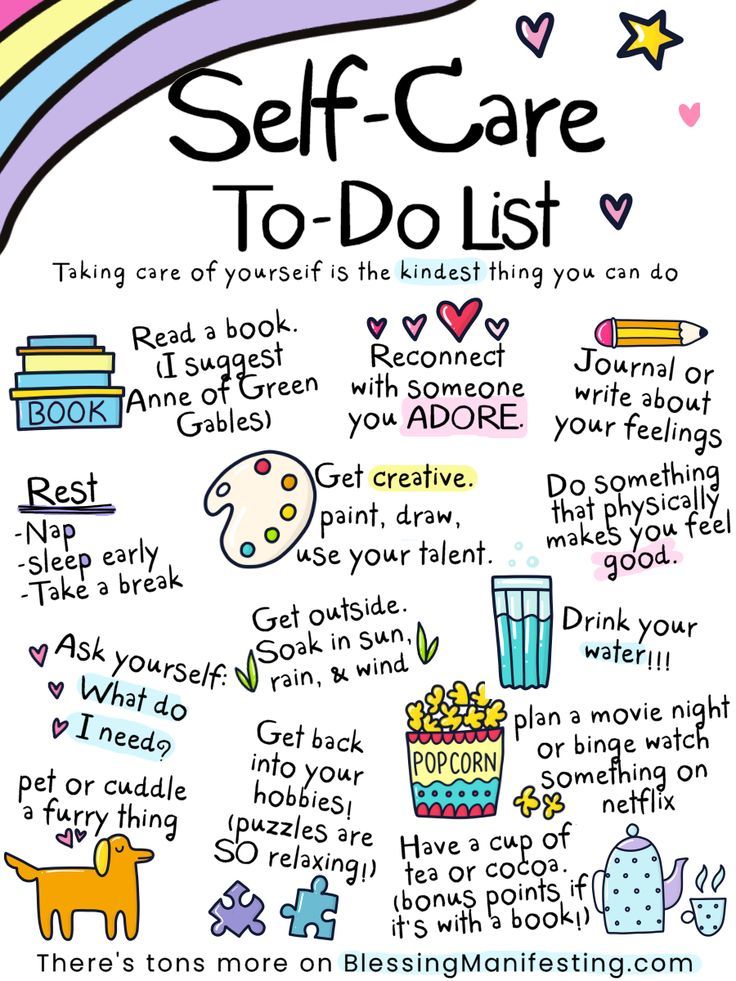 Self-Care
To-Do List
Taking care of yourself is the kindest thing you can do
BOOK
Read a book.
(I suggest
Anne of Green
Gables)
Reconnect
with someone
you ADORE.
Journal or
write about
your feelings
Rest
-Nap
-sleep early
-Take a break
Get creative.
paint, draw,
use your talent.
Do something
that physically
makes you feel
good.
Ask yourself:
What do
I need?
Get outside.
Soak in sun,
rain, & wind
Drink your
water!!!
pet or cuddle
a furry thing
Get back
into your
hobbies!
(puzzles are
SO relaxing!)
POPCORN
plan a movie night
or binge watch
something on
netflix
Have a cup of
tea or cocoa.
(bonus points if
it's with a book!)
There's tons more on BlessingManifesting.com